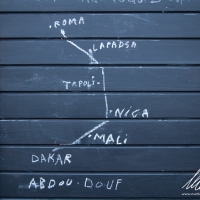 .ROMA
LAPADSA
TRPOLI-
.NIGA
.MALI
DAKAR
ABDOU.DOUF